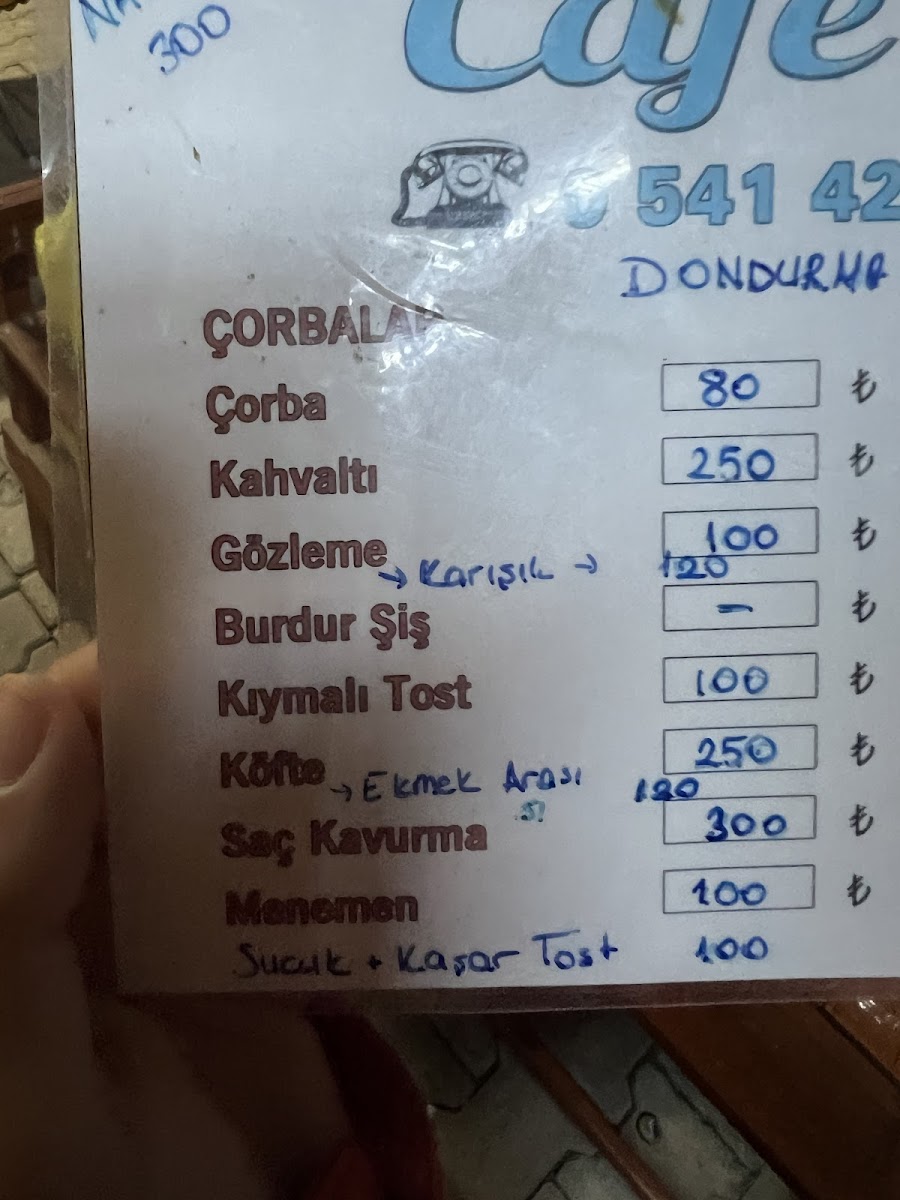 300
Cafe
541 42
DONDURMA
ÇORBALAR
Çorba 80 ₺
Kahvaltı 250 ₺
Gözleme 100 ₺
→ Karışık → 120
Burdur Şiş – ₺
Kıymalı Tost 100 ₺
Köfte 250 ₺
→ Ekmek Arası 120
Saç Kavurma 300 ₺
Menemen 100 ₺
Sucuk + Kaşar Tost 100